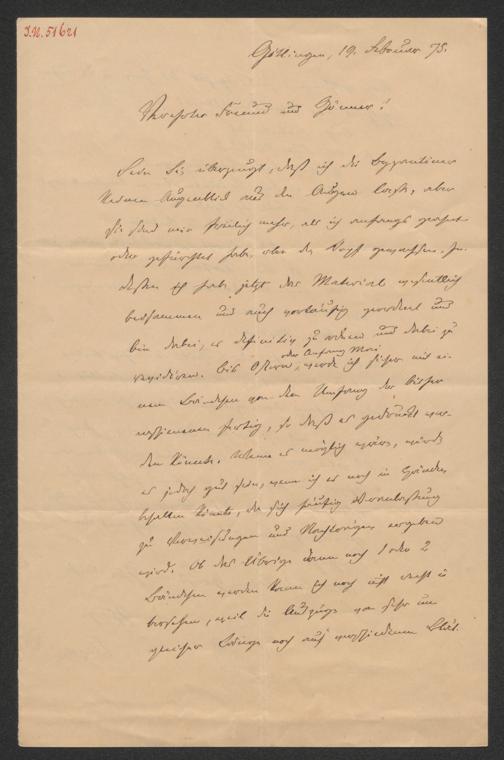 J.N. 51621
Göttingen, 19. Februar 75.
Verehrter Freund und Gönner!
Seien Sie überzeugt, daß ich die Byzantiner
keinen Augenblick aus den Augen lasse, aber
sie sind mir freilich mehr, als ich anfangs gehofft
oder gefürchtet habe, über den Kopf gewachsen. In-
dessen ich habe jetzt das Material wesentlich
beisammen und auch vorläufig geordnet und
bin dabei, es definitiv zu ordnen und dabei zu
revidieren. Bis Ostern, oder Anfang Mai werde ich sicher mit ei-
nem Bändchen von dem Umfang der bisher
erschienenen fertig, so daß es gedruckt wer-
den könnte. Wenn es möglich wäre, würde
es jedoch gut sein, wenn ich es noch in Händen
behalten könnte, da sich häufig Veranlassung
zu Verweisungen und Nachträgen ergeben
wird. Ob das Übrige dann noch 1 oder 2
Bändchen werden kann ich noch nicht recht ü-
bersehen, weil die Auszüge von sehr un-
gleicher Länge noch auf verschiedenen Blät-